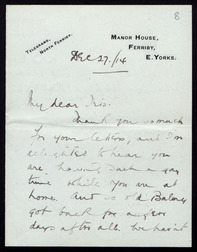 8
TELEGRAMS,
NORTH FERRIBY.
MANOR HOUSE,
FERRIBY,
E. YORKS.
Dec 27./14
My dear Iris.
Thank you so much
for your letters, and I'm
delighted to hear you
are having such a gay
time while you are at
home. And so old
got back for a few
days after all. We hasn't